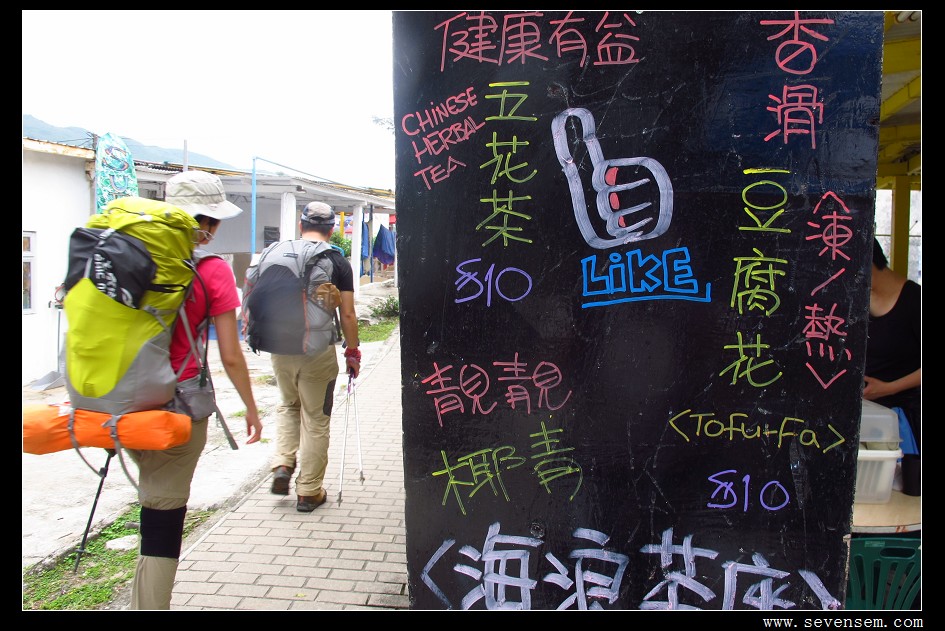 健康有益
五花茶
CHINESE
HERBAL
TEA
$10
LiKE
香滑
豆腐花
<凍/熱>
<ToFu-Fa>
$10
靚靚
椰青
<海浪茶座>
www.sevensem.com